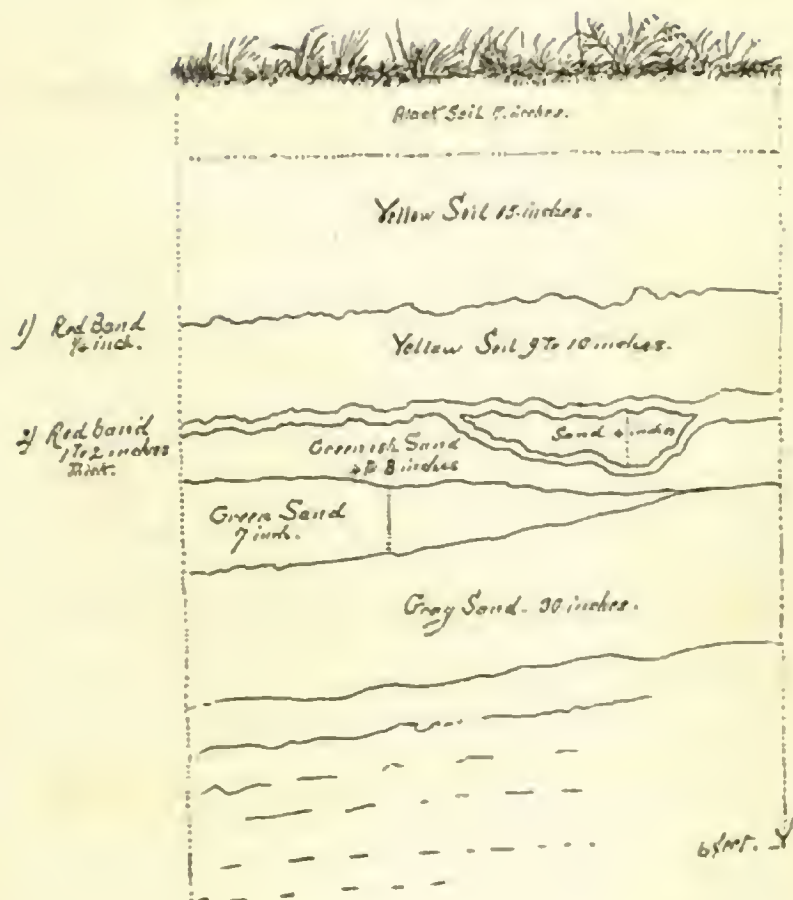 Black Soil inches.
Yellow Soil 15 inches.
1) Red Band
inch.
Yellow Soil 9 To 10 inches.
2) Red band
1 To 2 inches
Thick.
Sand 4 inches
Greenish Sand
4 To 8 inches
Green Sand
7 inch.
Gray Sand - 30 inches.
6 feet.